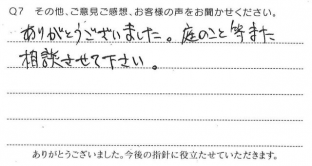 Q7 その他、ご意見ご感想、お客様の声をお聞かせください。
ありがとうございました。庭のこと等また
相談させて下さい。
ありがとうございました。今後の指針に役立たせていただきます。